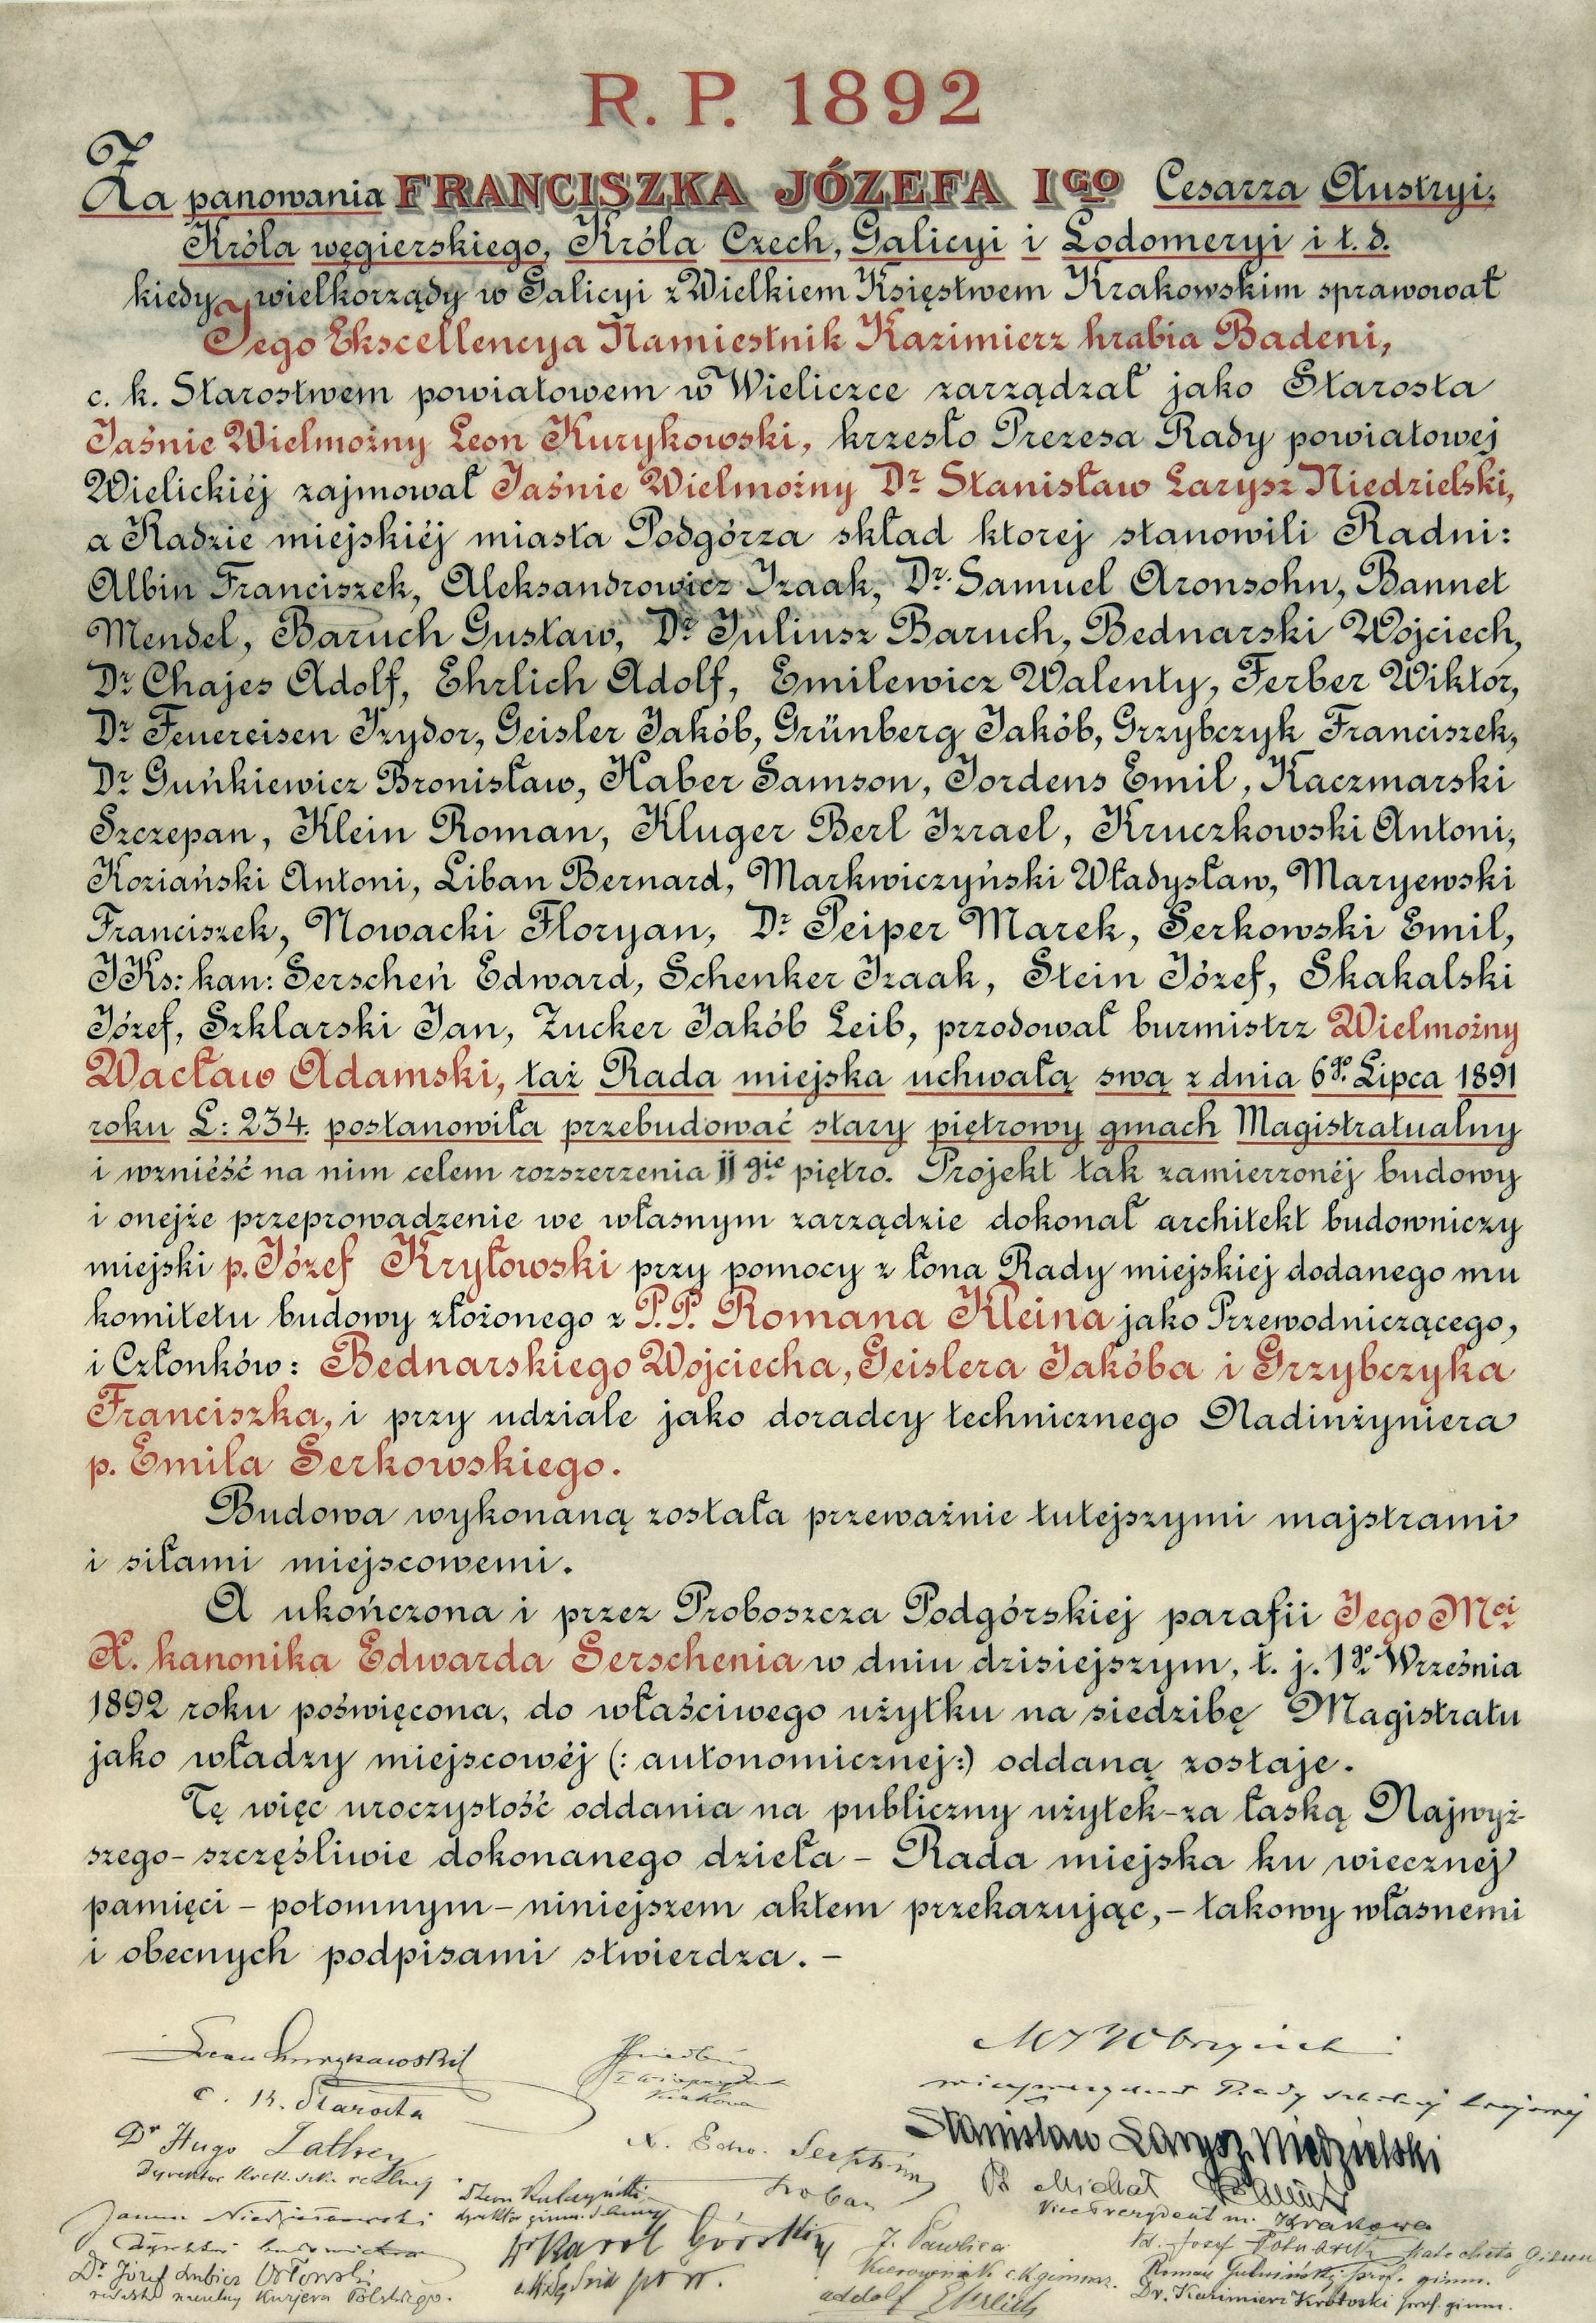 R. P. 1892
Za panowania FRANCISZKA JÓZEFA IGO Cesarza Austryi,
Króla węgierskiego, Króla Czech, Galicyi i Lodomeryi i t. d.
kiedy wielkorządy w Galicyi z Wielkiem Księstwem Krakowskim sprawował
Jego Ekscellencya Namiestnik Kazimierz hrabia Badeni,
c. k. Starostwem powiatowem w Wieliczce zarządzał jako Starosta
Jaśnie Wielmożny Leon Kurykowski, krzesło Prezesa Rady powiatowej
Wielickiéj zajmował Jaśnie Wielmożny Dr Stanisław Larysz Niedzielski,
a Radzie miejskiéj miasta Podgórza skład ktorej stanowili Radni:
Albin Franciszek, Aleksandrowicz Izaak, Dr. Samuel Aronsohn, Bannet
Mendel, Baruch Gustaw, Dr Juliusz Baruch, Bednarski Wojciech,
Dr Chajes Adolf, Ehrlich Adolf, Emilewicz Walenty, Ferber Wiktor,
Dr Feuereisen Izydor, Geisler Jakób, Grünberg Jakób, Grzybczyk Franciszek,
Dr Guńkiewicz Bronisław, Haber Samson, Jordens Emil, Kaczmarski
Szczepan, Klein Roman, Kluger Berl Izrael, Kruczkowski Antoni,
Koziański Antoni, Liban Bernard, Markwiczyński Władysław, Maryewski
Franciszek, Nowacki Floryan, Dr Peiper Marek, Serkowski Emil,
JKs: kan: Serscheń Edward, Schenker Izaak, Stein Józef, Skakalski
Józef, Szklarski Jan, Zucker Jakób Leib, przodował burmistrz Wielmożny
Wacław Adamski, taż Rada miejska uchwałą swą z dnia 6go Lipca 1891
roku L: 234. postanowiła przebudować stary piętrowy gmach Magistratualny
i wznieść na nim celem rozszerzenia IIgie piętro. Projekt tak zamierzonéj budowy
i onejże przeprowadzenie we własnym zarządzie dokonał architekt budowniczy
miejski p. Józef Kryłowski przy pomocy z łona Rady miejskiej dodanego mu
komitetu budowy złożonego z P.P. Romana Kleina jako Przewodniczącego,
i Członków: Bednarskiego Wojciecha, Geislera Jakóba i Grzybczyka
Franciszka, i przy udziale jako doradcy technicznego Nadinżyniera
p. Emila Serkowskiego.
Budowa wykonaną została przeważnie tutejszymi majstrami
i siłami miejscowemi.
A ukończona i przez Proboszcza Podgórskiej parafii Jego Mci
X. kanonika Edwarda Serschenia w dniu dzisiejszym, t. j. 1go Września
1892 roku poświęcona, do właściwego użytku na siedzibę Magistratu
jako władzy miejscowéj (: autonomicznej:) oddaną zostaje.
Tę więc uroczystość oddania na publiczny użytek-za łaską Najwyż-
szego- szczęśliwie dokonanego dzieła - Rada miejska ku wiecznej
pamięci - potomnym - niniejszem aktem przekazując, - takowy własnemi
i obecnych podpisami stwierdza. -
c. k. Starosta
Stanisław Larysz Niedzielski
Dr Hugo
X. Edw.
Dr Michał
Vice Prezydent m. Krakowa
Dr Karol Górski
J. Pawlica
Kierownik c.k. gimnaz.
Dr. Józef Lubicz Orłowski
Kuryera Polskiego.
Adolf Ehrlich
Dr. Kazimierz Krotoski prof. gimn.